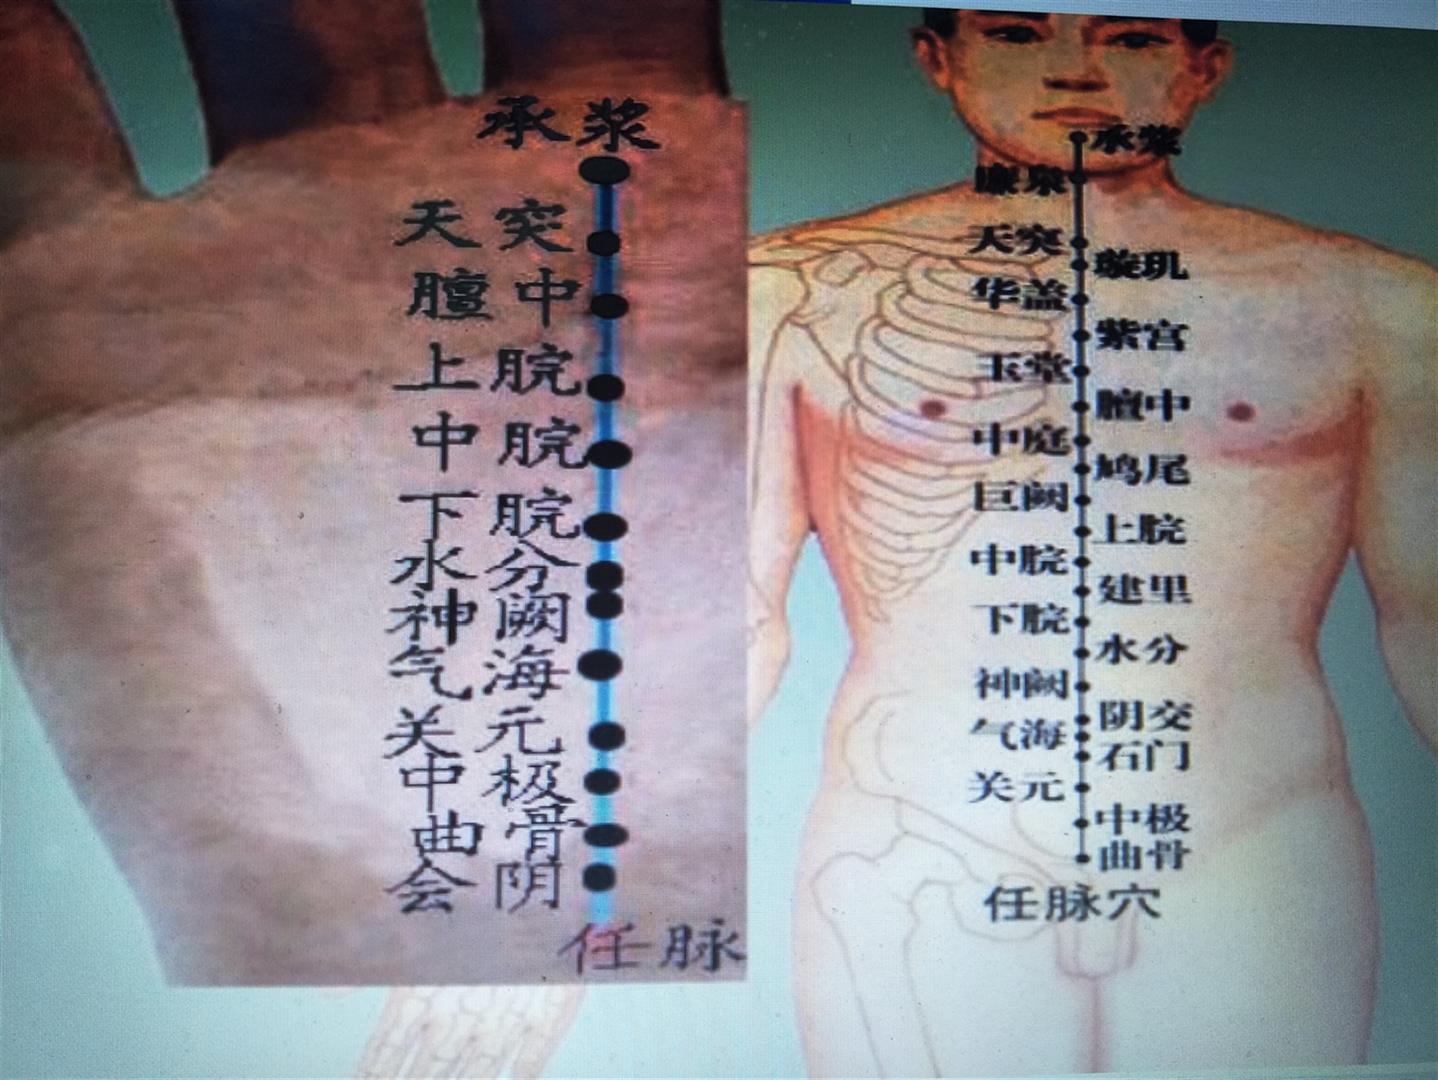 承浆
天突
膻中
上脘
中脘
下脘
水分
神阙
气海
关元
中极
曲骨
会阴
任脉
承浆
廉泉
天突
璇玑
华盖
紫宫
玉堂
膻中
中庭
鸠尾
巨阙
上脘
中脘
建里
下脘
水分
神阙
阴交
气海
石门
关元
中极
曲骨
任脉穴